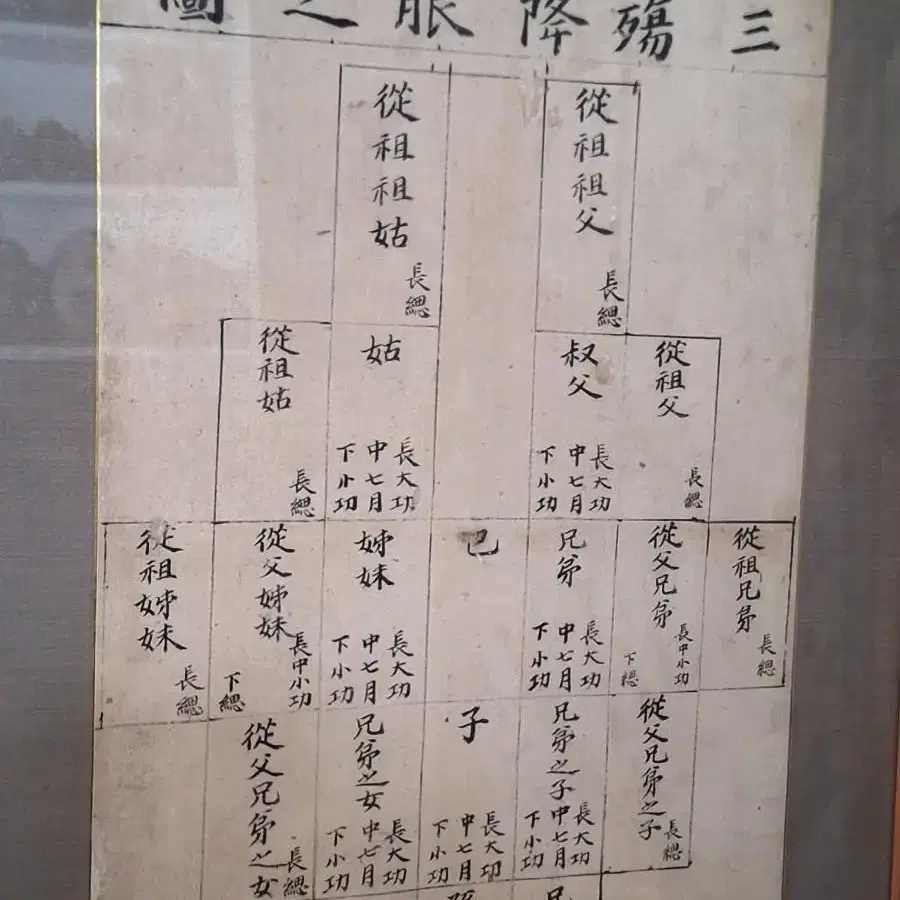 三殤降服之圖
從祖祖父
長緦
從祖祖姑
長緦
從祖父
長緦
叔父
長大功
中七月
下小功
姑
長大功
中七月
下小功
從祖姑
長緦
從祖兄弟
長緦
從父兄弟
長中小功
下緦
兄弟
長大功
中七月
下小功
己
姊妹
長大功
中七月
下小功
從父姊妹
長中小功
下緦
從祖姊妹
長緦
從父兄弟之子
長緦
兄弟之子
長大功
中七月
下小功
子
長大功
中七月
下小功
兄弟之女
長大功
中七月
下小功
從父兄弟之女
長緦